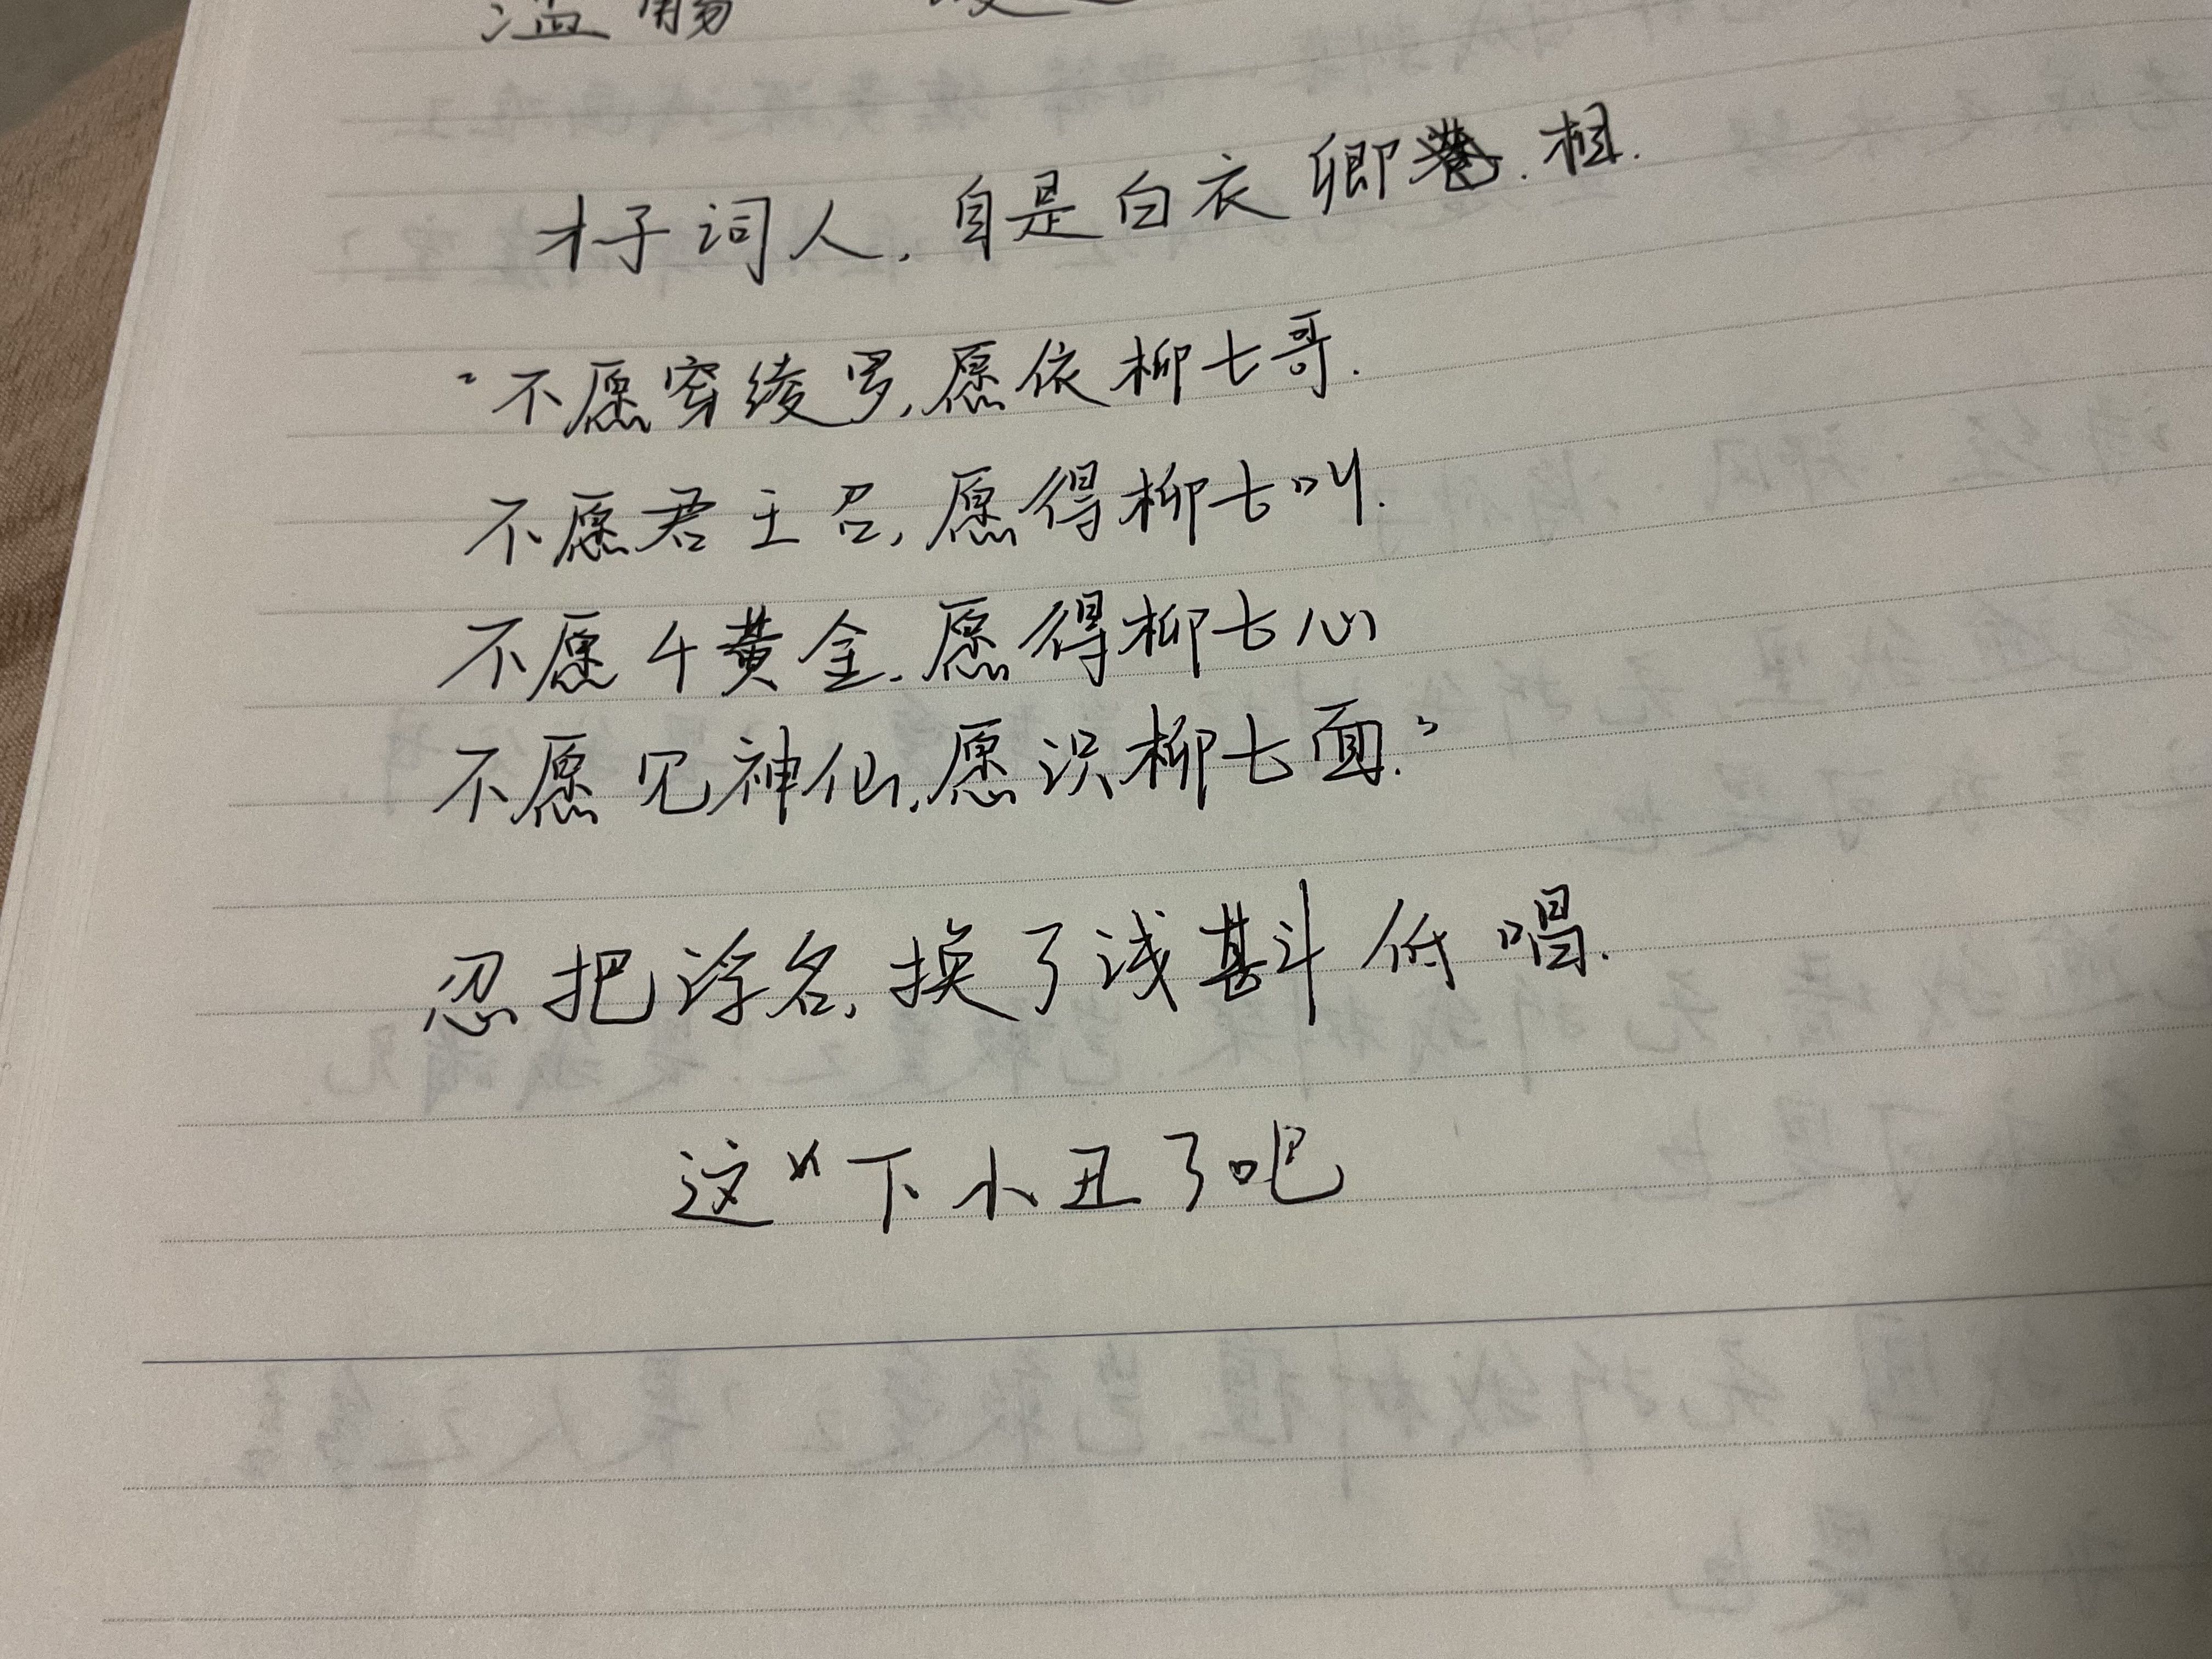 滥觞
才子词人,自是白衣卿相.
“不愿穿绫罗,愿依柳七哥.
不愿君王召,愿得柳七叫.
不愿千黄金.愿得柳七心
不愿见神仙,愿识柳七面.”
忍把浮名,换了浅斟低唱.
这下小丑了吧